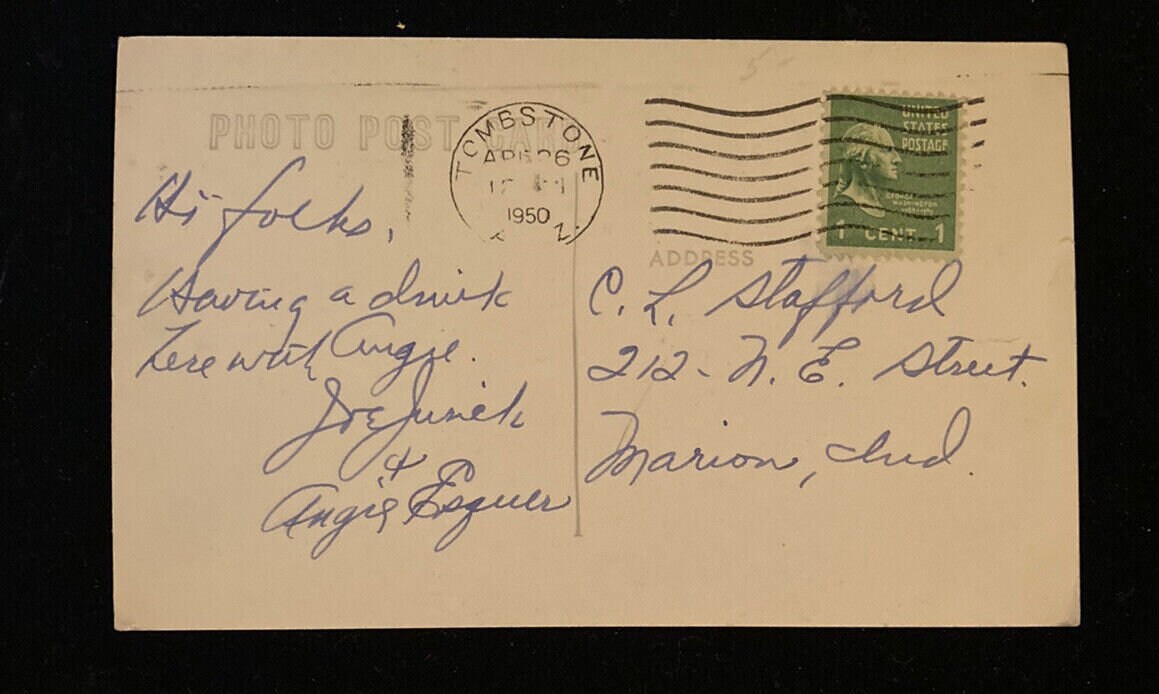 PHOTO POST CARD
TOMBSTONE
APR 26
1950
ARIZ.
UNITED
STATES
POSTAGE
GEORGE
WASHINGTON
1 CENT 1
ADDRESS
Hi folks,
Having a drink
here with Angie.
Joe
&
Angie Esquer
C. L. Stafford
212 - N. E. Street.
Marion, Ind.